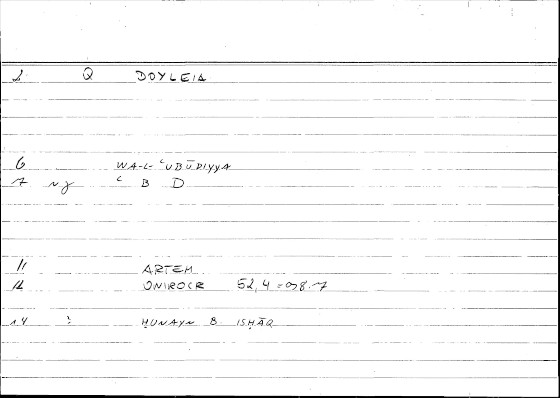 1 Q DOYLEIA
6 WA-L-ʿUBŪDIYYA
7 ʿ B D
11 ARTEM
12 ONIROCR 52,4
14 : ḤUNAYN B ISḤĀQ